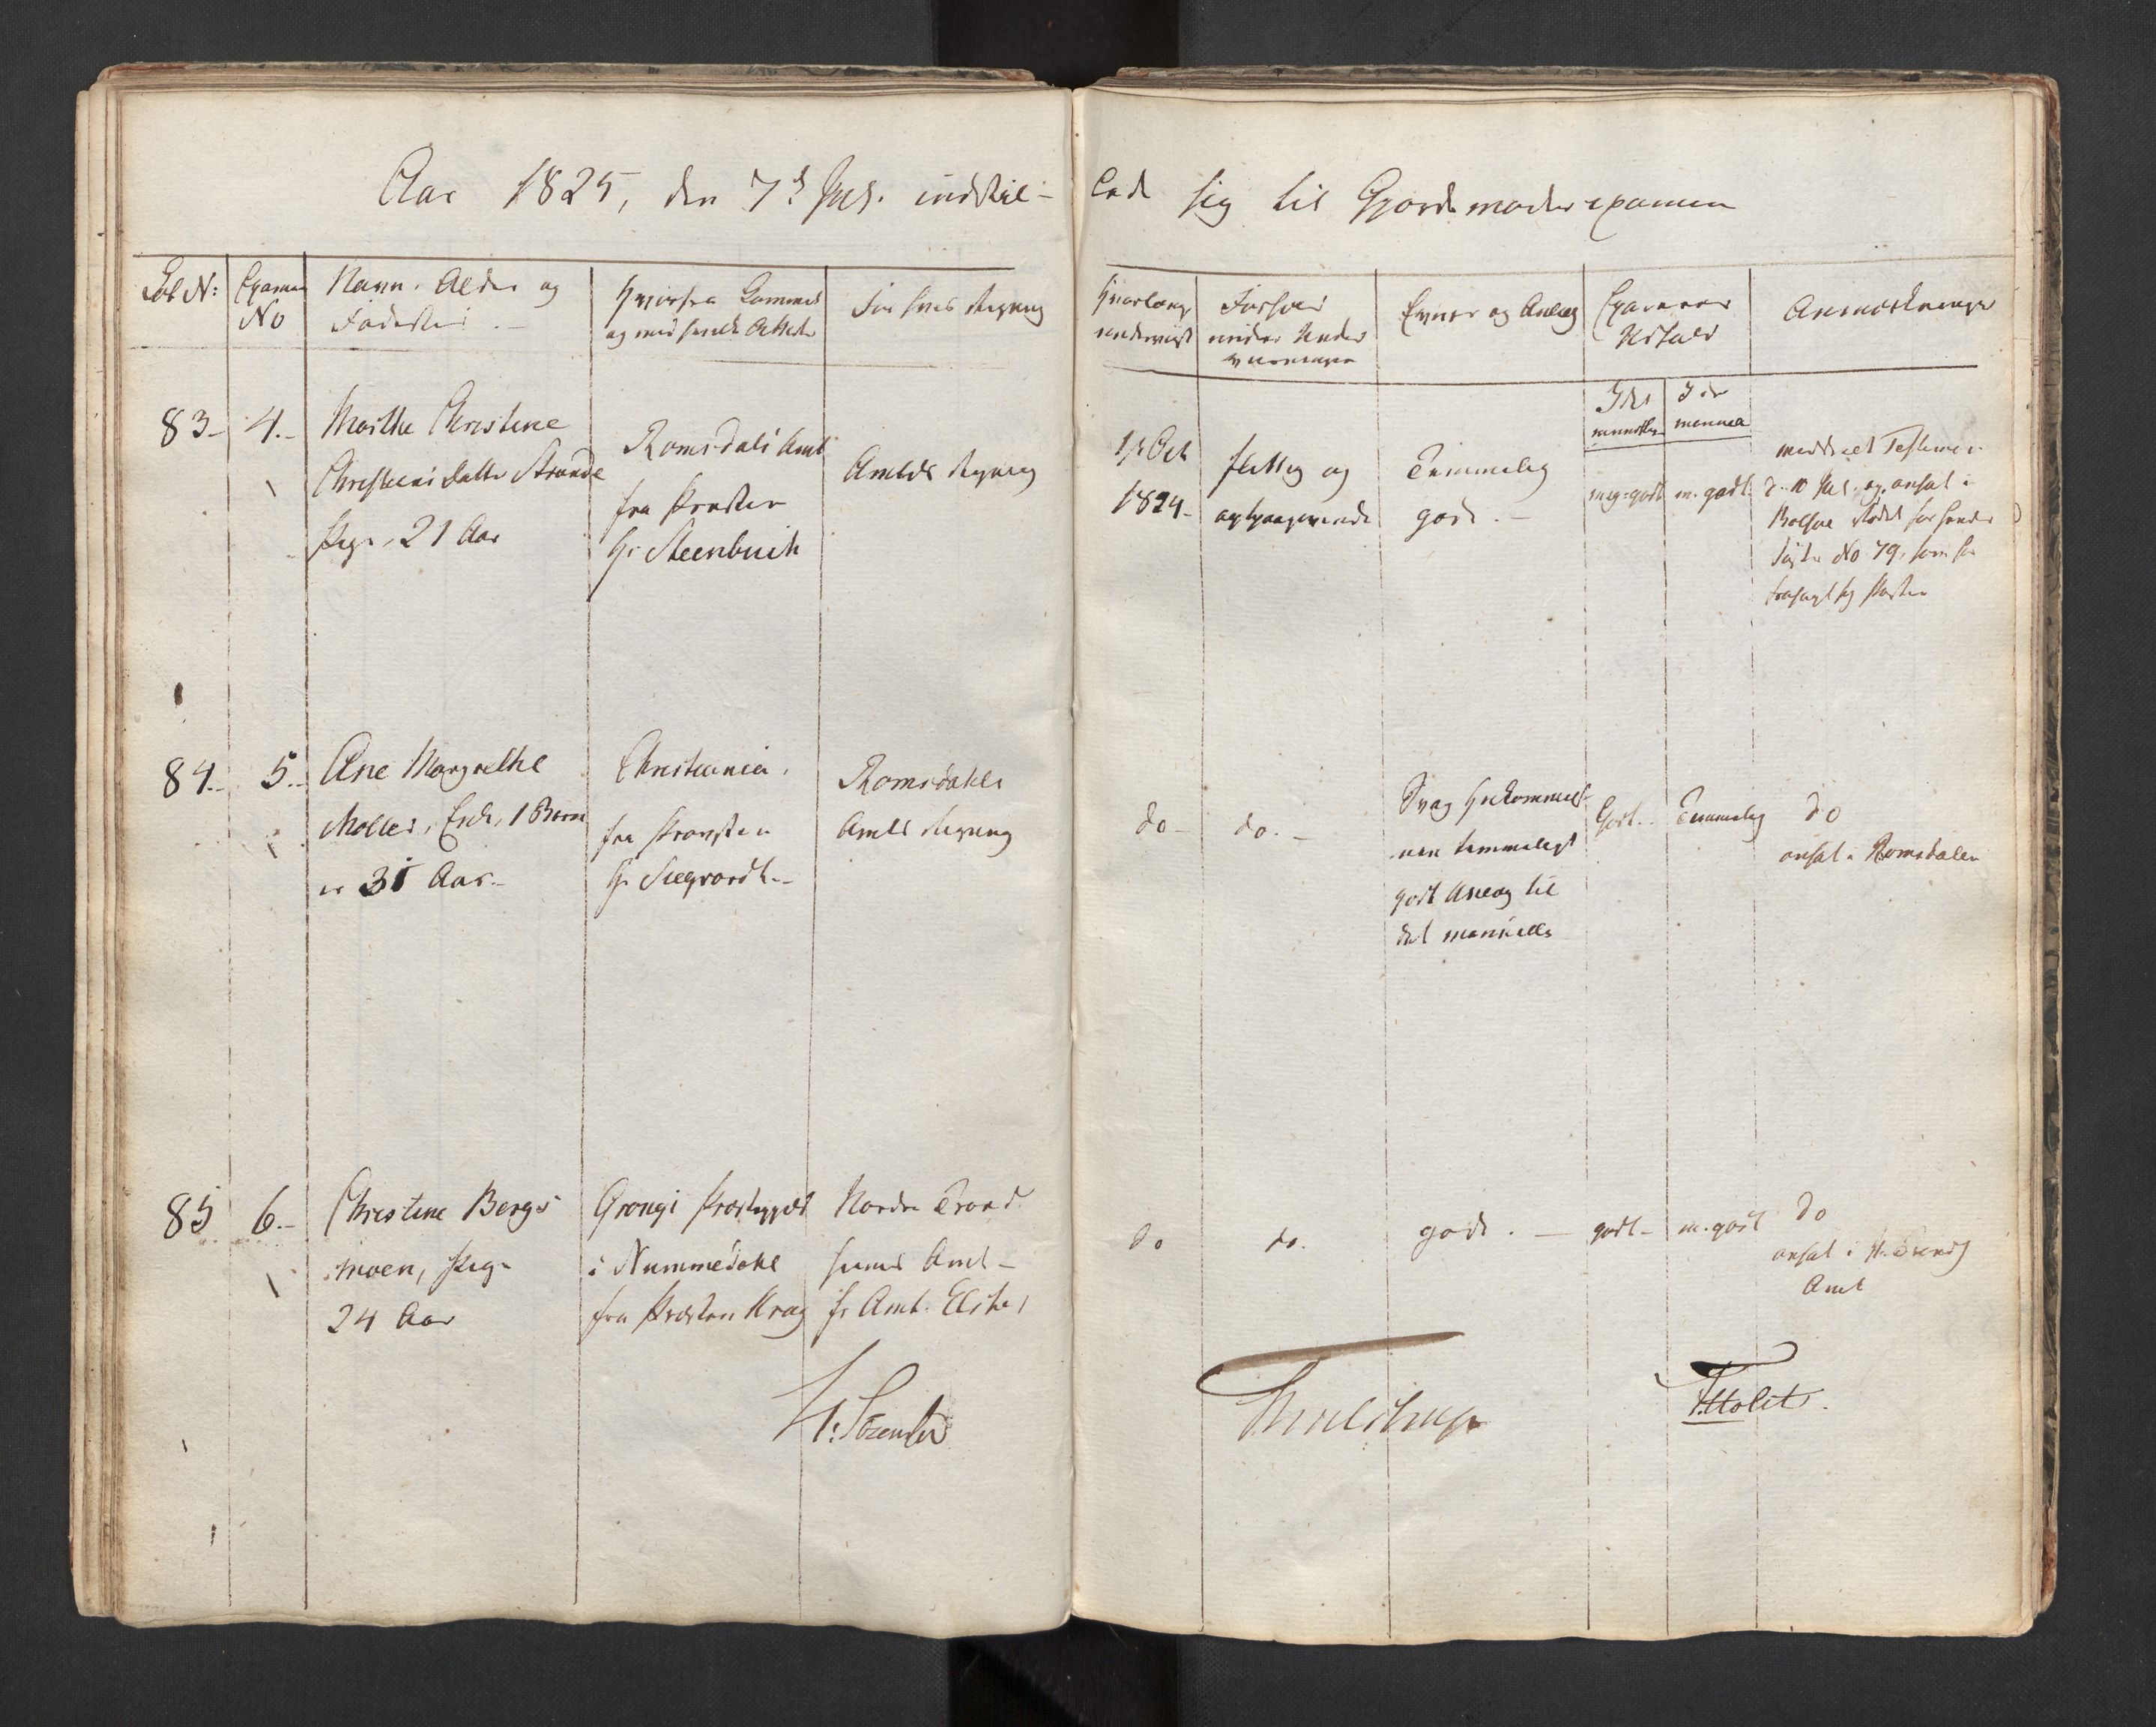 Aar 1825, den 7d Jul. indstil-
lede sig til Gjordemoderexamen
Løb N: Examen No Navn, Alder og Fødested.- Hvorfra kommet og med hvilke Attester For hvis Regning
Hvorlænge underviist Forhold under Underviisningen Evner og Anlæg Examens Udfald Anmærkninger
I det mundtlige I det manuel
83- 4.- Marthe Christine
Christensdatter Strande
Pige, 21 Aar
Romsdals Amt
fra Provsten
Hr Steenbuch
Amtets Regning
1ste Oct
1824-
flittig og
agtpaagivende
Temmelig
gode.-
meg-godt m. godt.
meddeelt Testimon.
d. 10 Jul. og ansat i
Bolsøe stedet for
No 79, som har
frasagt sig Posten
84.- 5.- Ane Margrethe
Møller, Enke, 1 Barn
er 31 Aar.-
Christiania.
fra Provsten
Hr Siegvardt.-
Romsdahls
Amts Regning
do- do.-
Svag Hukommelse
men temmeligt
godt Anlæg til
det manuelle
Godt.- Temmelig
do
ansat i Romsdalen
85 6.- Christine Bergs
moen, Pige
24 Aar
Grongs Præstegjeld
i Nummedahl
fra Præsten Krag
Nordre Trond
hjems Amt-
fr Amt.
do do. gode.- godt- m. godt
do
ansat i N. Trondhj
Amt
Thulstrup
F. Holst.